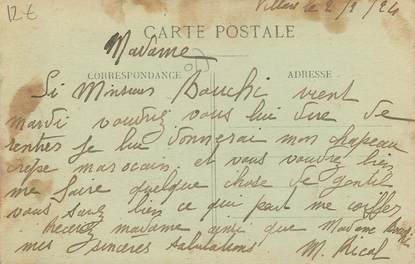 12 €
Villers le 2/2/24
CARTE POSTALE
Madame
CORRESPONDANCE ADRESSE
Si Monsieur Bouchi vient
mardi voudrez vous lui dire de
rentrer je lui donnerai mon chapeau
crêpe marocain. et vous voudrez bien
me faire quelque chose de gentil
vous savez bien ce qui peut me coiffer
Recevez madame ainsi que Madame
mes sincères salutations M. Ricol